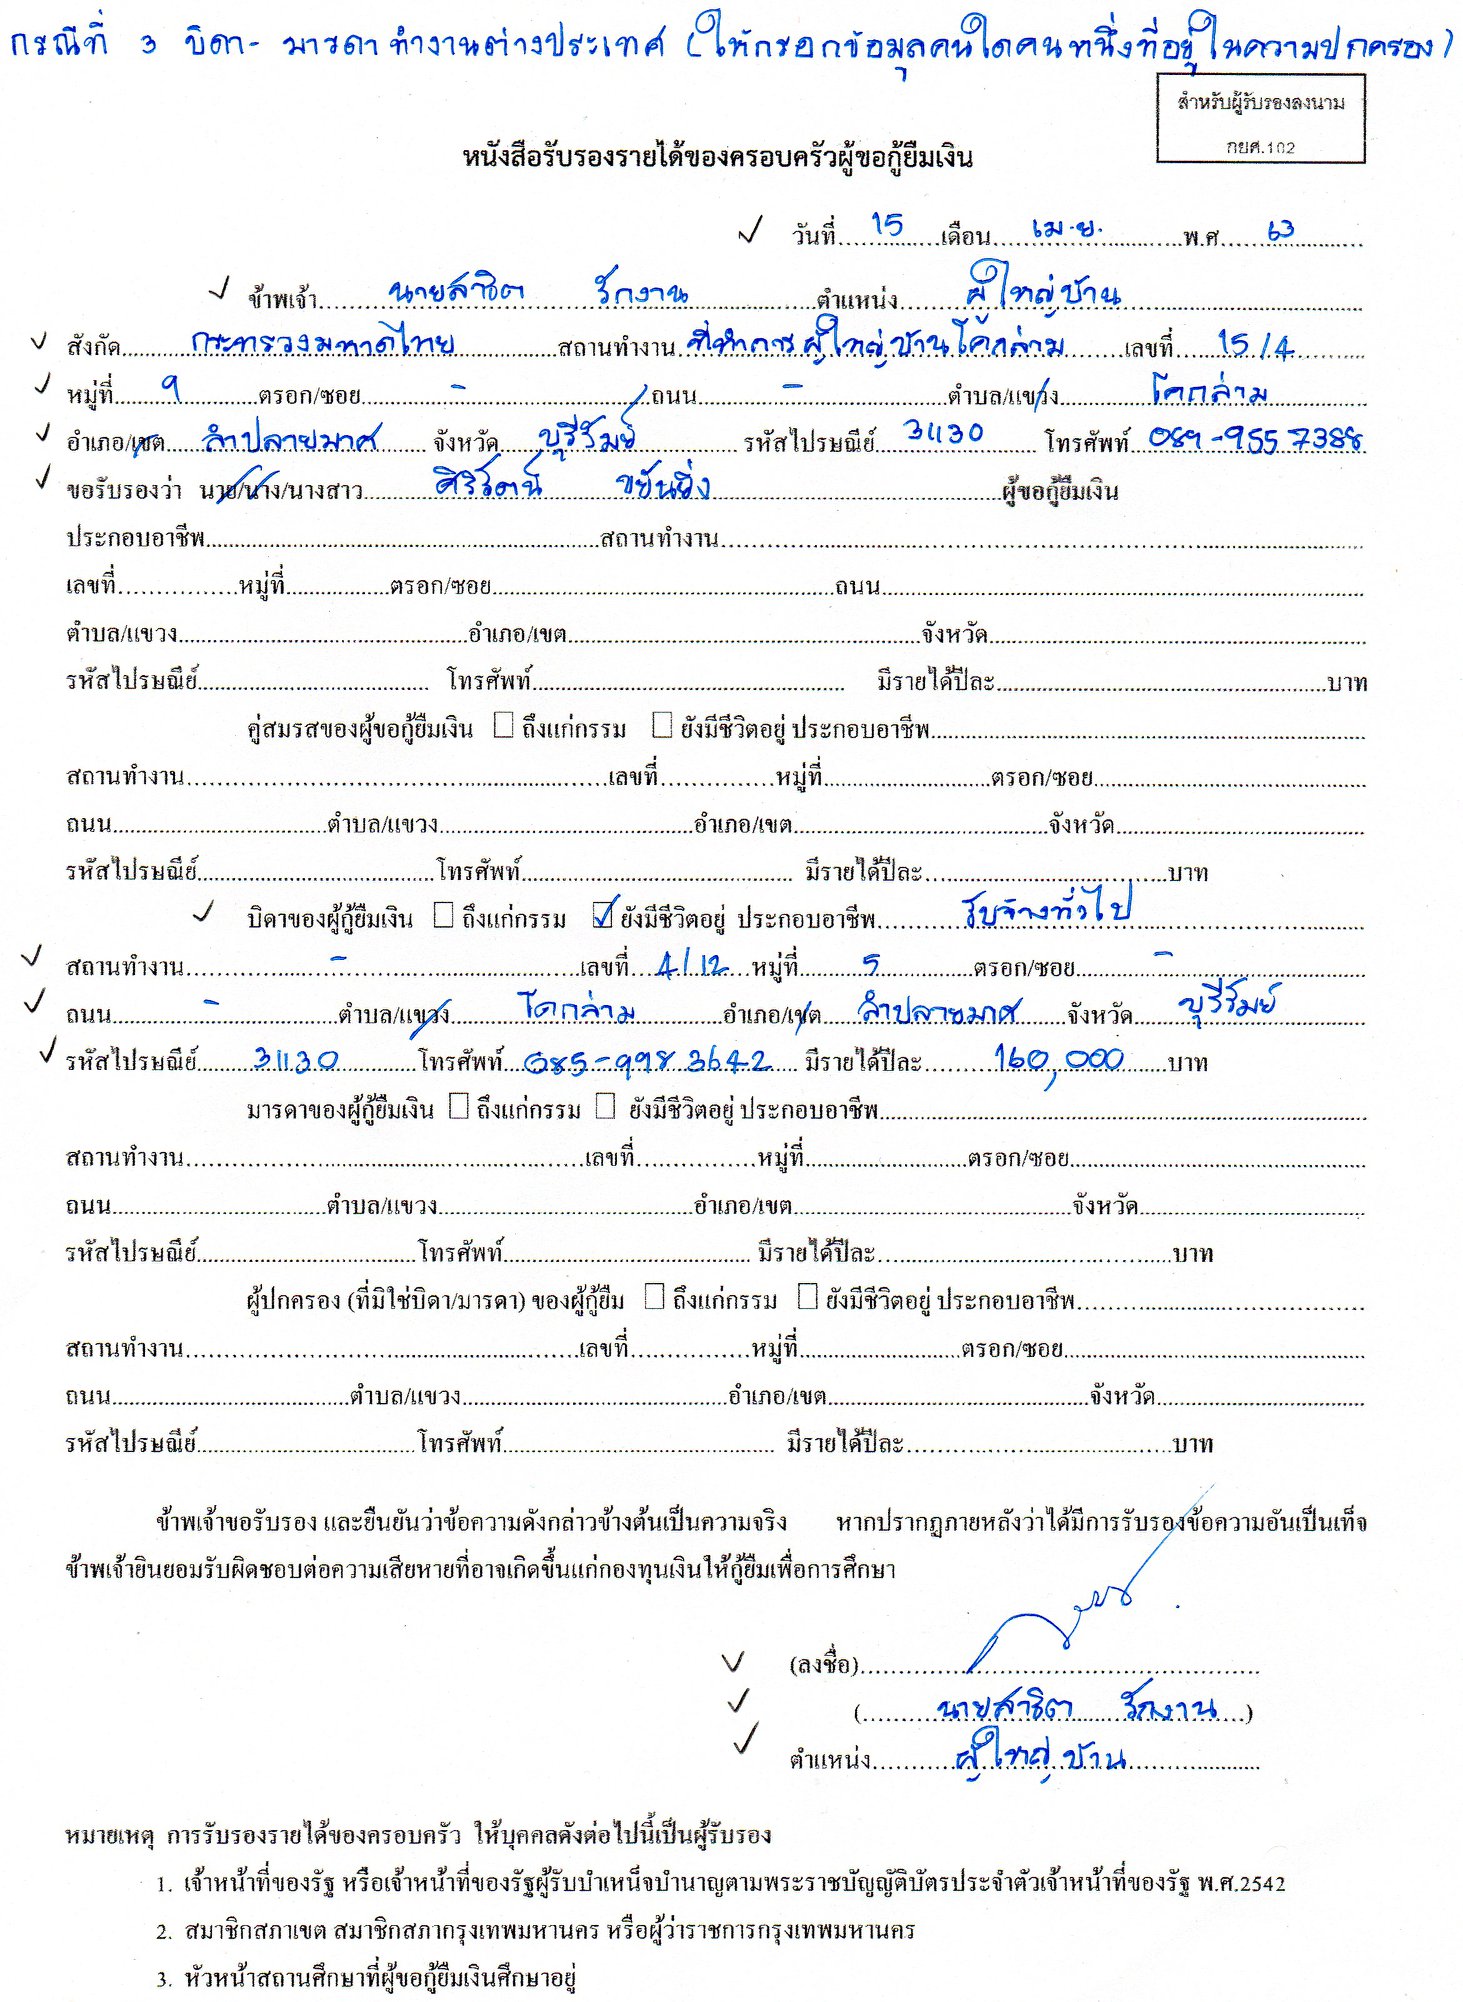 กรณีที่ 3 บิดา- มารดา ทำงานต่างประเทศ (ให้กรอกข้อมูลคนใดคนหนึ่งที่อยู่ในความปกครอง)
สำหรับผู้รับรองลงนาม
กยศ.102
หนังสือรับรองรายได้ของครอบครัวผู้ขอกู้ยืมเงิน
✓ วันที่ 15 เดือน เม.ย. พ.ศ 63
✓ ข้าพเจ้า นายสาธิต รักงาน ตำแหน่ง ผู้ใหญ่บ้าน
✓ สังกัด กระทรวงมหาดไทย สถานทำงาน ที่ทำการผู้ใหญ่บ้านโคกล่าม เลขที่ 15/4
✓ หมู่ที่ 9 ตรอก/ซอย - ถนน - ตำบล/แขวง โคกล่าม
✓ อำเภอ/เขต ลำปลายมาศ จังหวัด บุรีรัมย์ รหัสไปรษณีย์ 31130 โทรศัพท์ 089-955 7388
✓ ขอรับรองว่า นาย/นาง/นางสาว ศิริรัตน์ ขยันยิ่ง ผู้ขอกู้ยืมเงิน
ประกอบอาชีพ สถานทำงาน
เลขที่ หมู่ที่ ตรอก/ซอย ถนน
ตำบล/แขวง อำเภอ/เขต จังหวัด
รหัสไปรษณีย์ โทรศัพท์ มีรายได้ปีละ บาท
คู่สมรสของผู้ขอกู้ยืมเงิน ☐ ถึงแก่กรรม ☐ ยังมีชีวิตอยู่ ประกอบอาชีพ
สถานทำงาน เลขที่ หมู่ที่ ตรอก/ซอย
ถนน ตำบล/แขวง อำเภอ/เขต จังหวัด
รหัสไปรษณีย์ โทรศัพท์ มีรายได้ปีละ บาท
✓ บิดาของผู้กู้ยืมเงิน ☐ ถึงแก่กรรม ☑ ยังมีชีวิตอยู่ ประกอบอาชีพ รับจ้างทั่วไป
✓ สถานทำงาน - เลขที่ 4/12 หมู่ที่ 5 ตรอก/ซอย -
✓ ถนน - ตำบล/แขวง โคกล่าม อำเภอ/เขต ลำปลายมาศ จังหวัด บุรีรัมย์
✓ รหัสไปรษณีย์ 31130 โทรศัพท์ 085-998 3642 มีรายได้ปีละ 160,000 บาท
มารดาของผู้กู้ยืมเงิน ☐ ถึงแก่กรรม ☐ ยังมีชีวิตอยู่ ประกอบอาชีพ
สถานทำงาน เลขที่ หมู่ที่ ตรอก/ซอย
ถนน ตำบล/แขวง อำเภอ/เขต จังหวัด
รหัสไปรษณีย์ โทรศัพท์ มีรายได้ปีละ บาท
ผู้ปกครอง (ที่มิใช่บิดา/มารดา) ของผู้กู้ยืม ☐ ถึงแก่กรรม ☐ ยังมีชีวิตอยู่ ประกอบอาชีพ
สถานทำงาน เลขที่ หมู่ที่ ตรอก/ซอย
ถนน ตำบล/แขวง อำเภอ/เขต จังหวัด
รหัสไปรษณีย์ โทรศัพท์ มีรายได้ปีละ บาท
ข้าพเจ้าขอรับรอง และยืนยันว่าข้อความดังกล่าวข้างต้นเป็นความจริง หากปรากฏภายหลังว่าได้มีการรับรองข้อความอันเป็นเท็จ
ข้าพเจ้ายินยอมรับผิดชอบต่อความเสียหายที่อาจเกิดขึ้นแก่กองทุนเงินให้กู้ยืมเพื่อการศึกษา
✓ (ลงชื่อ)
✓ (นายสาธิต รักงาน)
✓ ตำแหน่ง ผู้ใหญ่บ้าน
หมายเหตุ การรับรองรายได้ของครอบครัว ให้บุคคลดังต่อไปนี้เป็นผู้รับรอง
1. เจ้าหน้าที่ของรัฐ หรือเจ้าหน้าที่ของรัฐผู้รับบำเหน็จบำนาญตามพระราชบัญญัติบัตรประจำตัวเจ้าหน้าที่ของรัฐ พ.ศ.2542
2. สมาชิกสภาเขต สมาชิกสภากรุงเทพมหานคร หรือผู้ว่าราชการกรุงเทพมหานคร
3. หัวหน้าสถานศึกษาที่ผู้ขอกู้ยืมเงินศึกษาอยู่